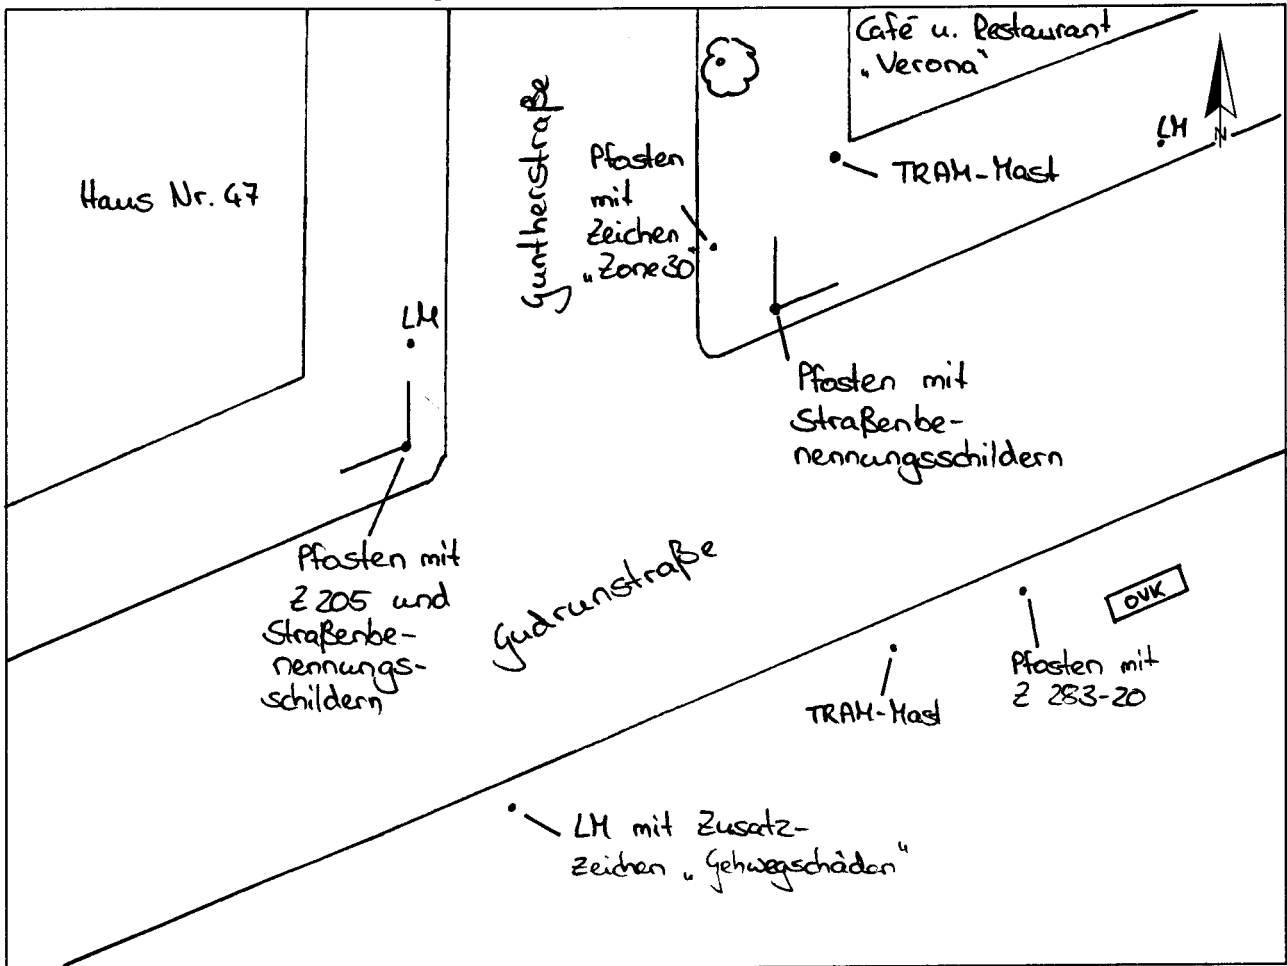 Café u. Restaurant
„Verona“
LM
N
TRAM-Mast
Haus Nr. 47
Guntherstraße
Pfosten
mit
Zeichen
„Zone30“
LM
Pfosten mit
Straßenbe-
nennungsschildern
Pfosten mit
Z 205 und
Straßenbe-
nennungs-
schildern
Gudrunstraße
OVK
Pfosten mit
Z 283-20
TRAM-Mast
LM mit Zusatz-
zeichen „Gehwegschäden“